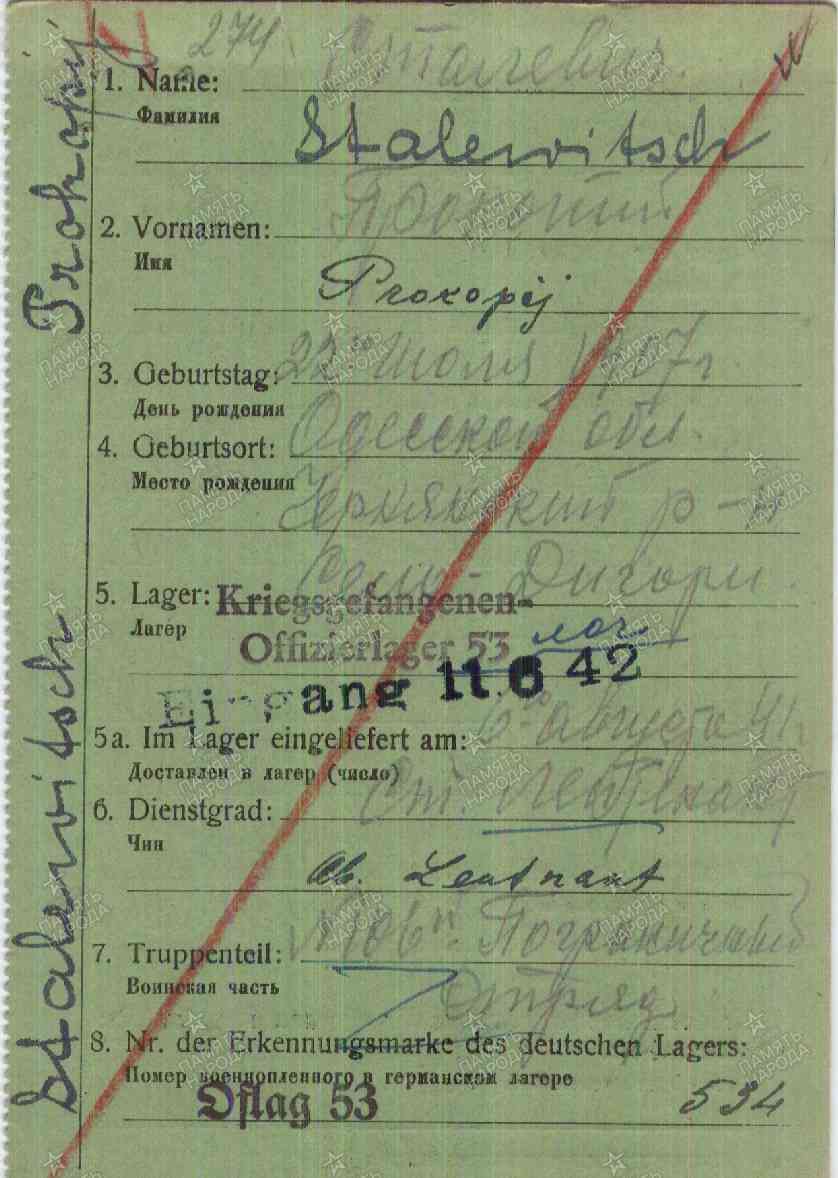 274 Сталевич.
1. Name:
Фамилия
Stalewitsch
Прокопий
2. Vornamen:
Имя
Prokopij
3. Geburtstag: 22го Июля 1907 г
День рождения
4. Geburtsort: Одесской обл.
Место рождения
р-н
5. Lager: Село - Дигори.
Kriegsgefangenen-
Лагерь
Offizierlager 53
Eingang 11 6 42
5a. Im Lager eingeliefert am: 6го августа 41г
Доставлен в лагерь (число)
6. Dienstgrad: Ст. Лейтенант
Чин
Ob. Leutnant
7. Truppenteil: Пограничный
Воинская часть Отряд
8. Nr. der Erkennungsmarke des deutschen Lagers:
Номер военнопленного в германском лагере
Oflag 53 534
Stalewitsch Prokopij
ПАМЯТЬ НАРОДА